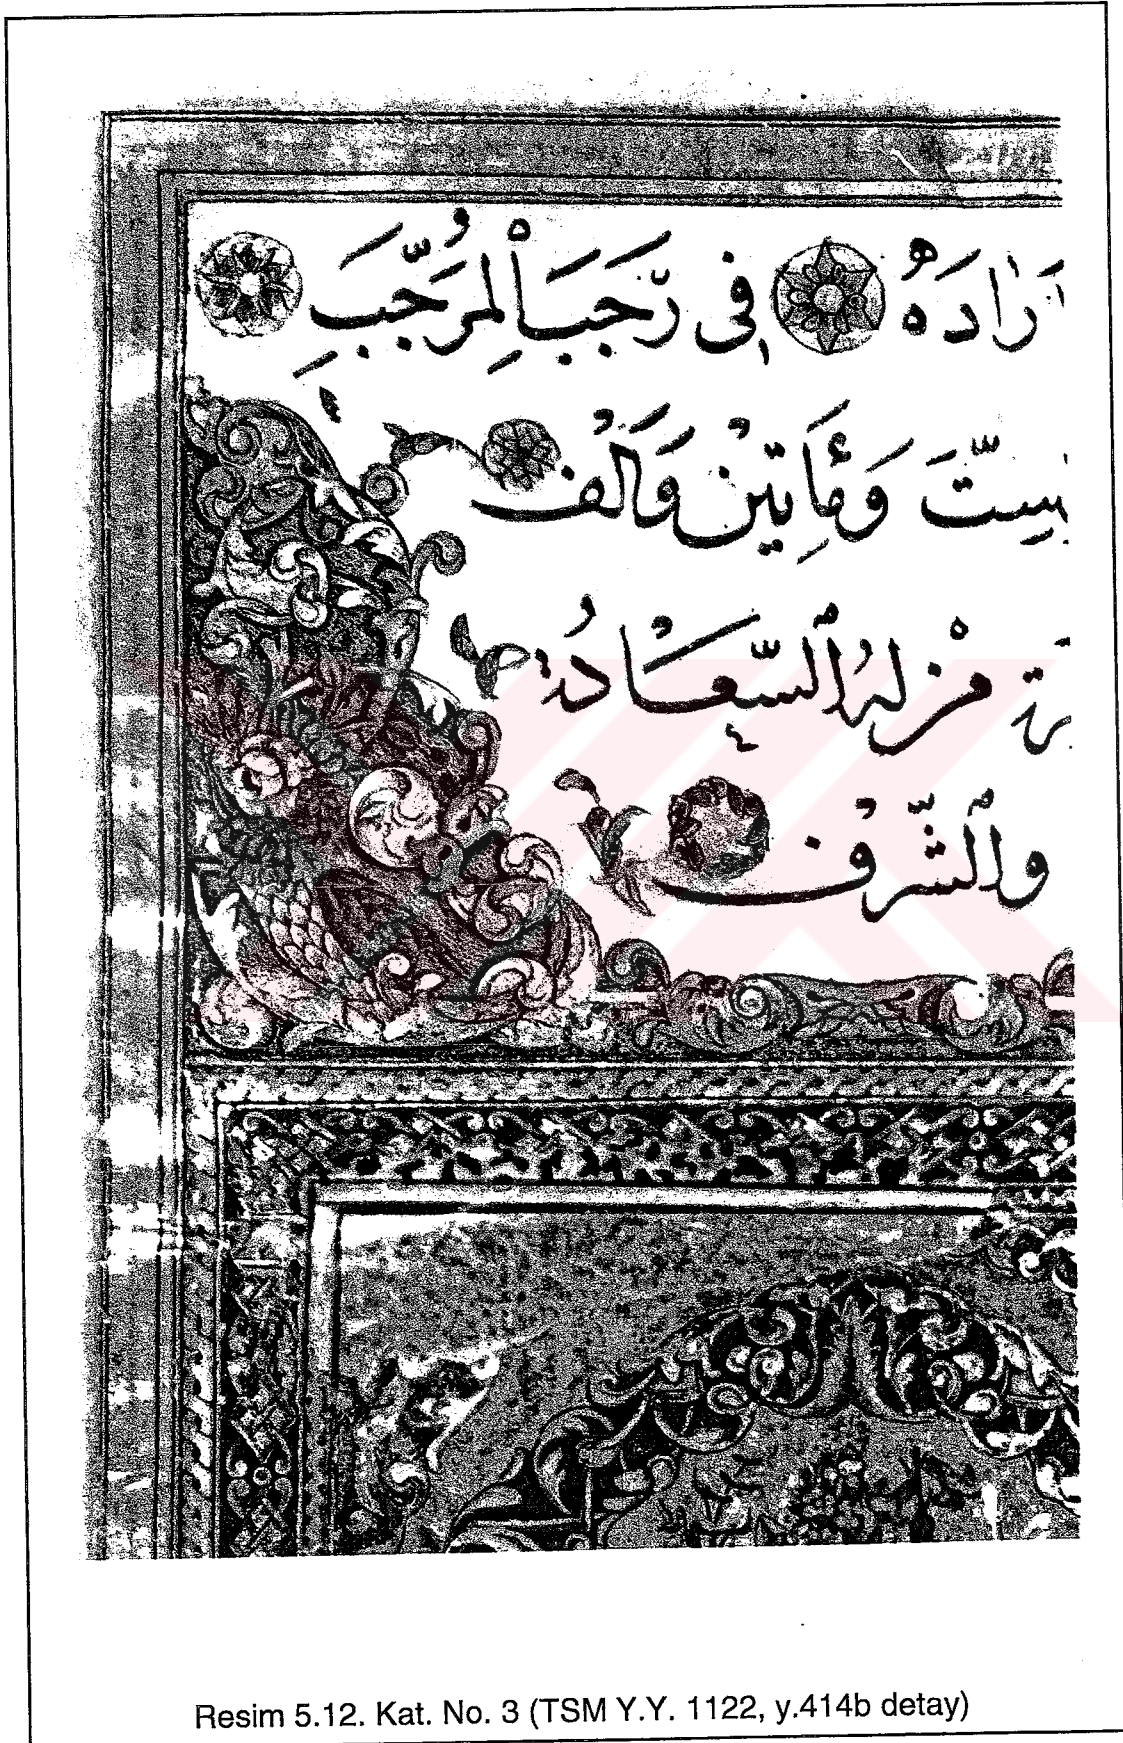 زَادَهُ فِى رَجَبِ الْمُرَجَّبِ
سِتَّ وَمِأَتَيْنِ وَاَلْفٍ
مَنْ لَهُ السَّعَادَةُ
وَالشَّرَفُ
Resim 5.12. Kat. No. 3 (TSM Y.Y. 1122, y.414b detay)